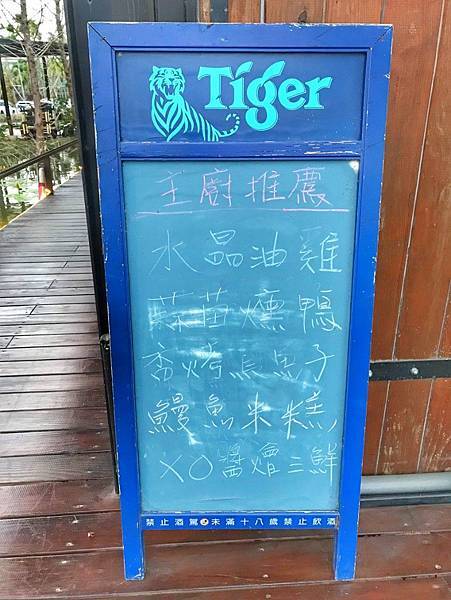 Tiger
主廚推薦
水晶油雞
蒜苗燻鴨
香烤烏魚子
鰻魚米糕
XO醬燴三鮮
禁止酒駕 未滿十八歲禁止飲酒